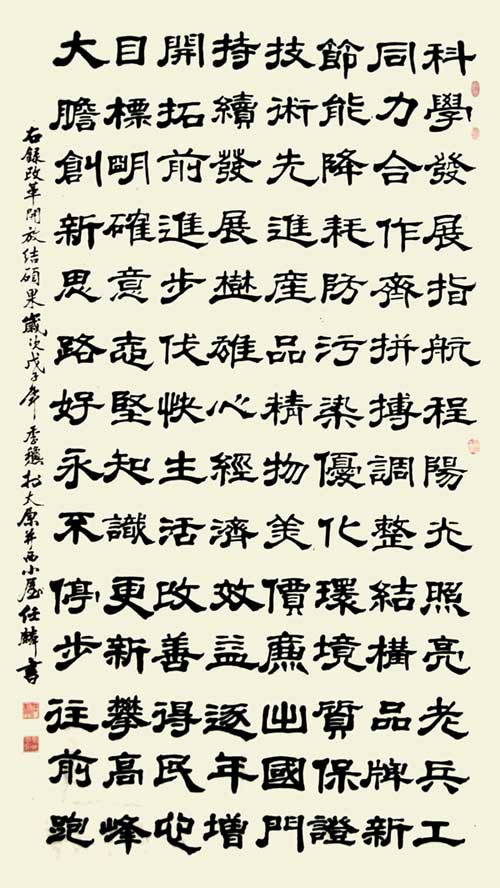 科學發展指航程陽光照亮老兵工
同力合作齊拼搏調整結構品牌新
節能降耗防污染優化環境質保證
技術先進產品精物美價廉出國門
持續發展樹雄心經濟效益逐年增
開拓前進步伐快生活改善得民心
目標明確意志堅知識更新攀高峰
大膽創新思路好永不停步往前跑
右錄改革開放結碩果歲次戊子年季於太原并西小屋任麟書